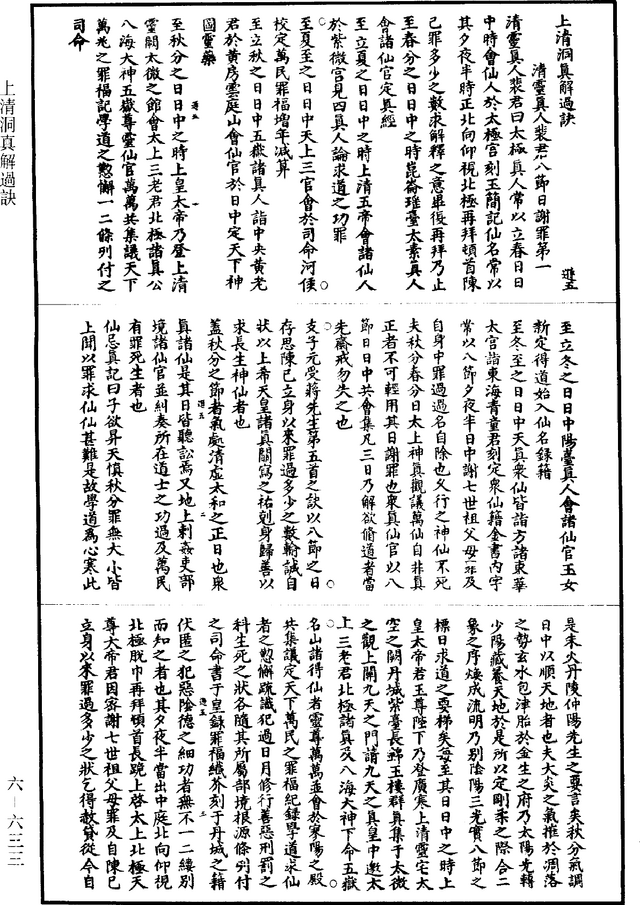 上清洞真解過訣
清靈真人裴君八節日謝罪第一
遜五
清靈真人裴君曰太極真人常以立春日日
中時會仙人於太極宮刻玉簡記仙名常以
其夕夜半時正北向仰視北極再拜頓首陳
己罪多少之數求解釋之意畢復再拜乃止
至春分之日日中之時崑崙瑤臺太素真人
會諸仙官定真經
至立夏之日日中之時上清五帝會諸仙人
於紫微宮見四真人論求道之功罪
至夏至之日日中天上三官會於司命河侯
校定萬民罪福增年減算
至立秋之日日中五嶽諸真人詣中央黃老
君於黃房雲庭山會仙官於日中定天下神
圖靈藥
遜五
一
至秋分之日日中之時上皇太帝乃登上清
靈闕太微之館會太上三老君北極諸真公
八海大神五嶽尊靈仙官萬萬共集議天下
萬兆之罪福記學道之懃懈一二條列付之
司命
至立冬之日日中陽臺真人會諸仙官玉女
新定得道始入仙名錄籍
至冬至之日日中天真眾仙皆詣方諸東華
太宮詣東海青童君刻定眾仙籍金書內字
常以八節夕夜半日中謝七世祖父母并及
自身中罪過過名自除也又行之神仙不死
夫秋分春分日太上神真觀議萬仙自非真
正者不可輕用其日謝罪也眾真仙官以八
節日日中共會集凡三日乃解欲脩道者當
先齋戒勿失之也
支子元受蔣先生第五首之訣以八節之日
存思陳己立身以來罪過多少之數輸誠自
狀以上希天皇諸真闕寫之祐剋身歸善以
求長生神仙者也
蓋秋分之節者氣處清虛太和之正日也眾
遜五
二
真諸仙是其日皆聽訟焉又地上刺姦吏部
境諸仙官並糾奏所在道士之功過及萬民
有罪死生者也
仙忌真記曰子欲昇天慎秋分罪無大小皆
上聞以罪求仙仙甚難是故學道為心寒此
是朱火丹陵仲陽先生之要言矣秋分氣調
日中以順天地者也夫大炎之氣推於凋落
之勢玄水包津胎於金生之府乃太陽先轉
少陽藏養天地於是所以定剛柔之際合二
象之序煥成流明乃別陰陽三光實八節之
標日求道之要梯矣每至其日日中之時上
皇太帝君玉尊陛下乃登廣寒上清靈宅太
空之闕丹城紫臺長錦玉樓群真集于太微
之觀上開九天之門請九天之真皇中邀太
上三老君北極諸真及八海大神下命五嶽
名山諸得仙者靈尊萬萬並會於寥陽之殿
共集議定天下萬民之罪福紀錄學道求仙
者之懃懈疏識犯過日月修行善惡刑罰之
科生死之狀各隨其所屬部境根源條列付
之司命書于皇錄罪福纖芥刻于丹城之籍
遜五
三
伏匿之犯惡陰德之細功者無不一二縷別
而知之者也其夕夜半當出中庭北向仰視
北極脫巾再拜頓首長跪上啓太上北極天
尊大帝君因密謝七世祖父母罪及自陳己
立身以來罪過多少之狀乞得赦貸從今自
上清洞真解過訣
六－六三三